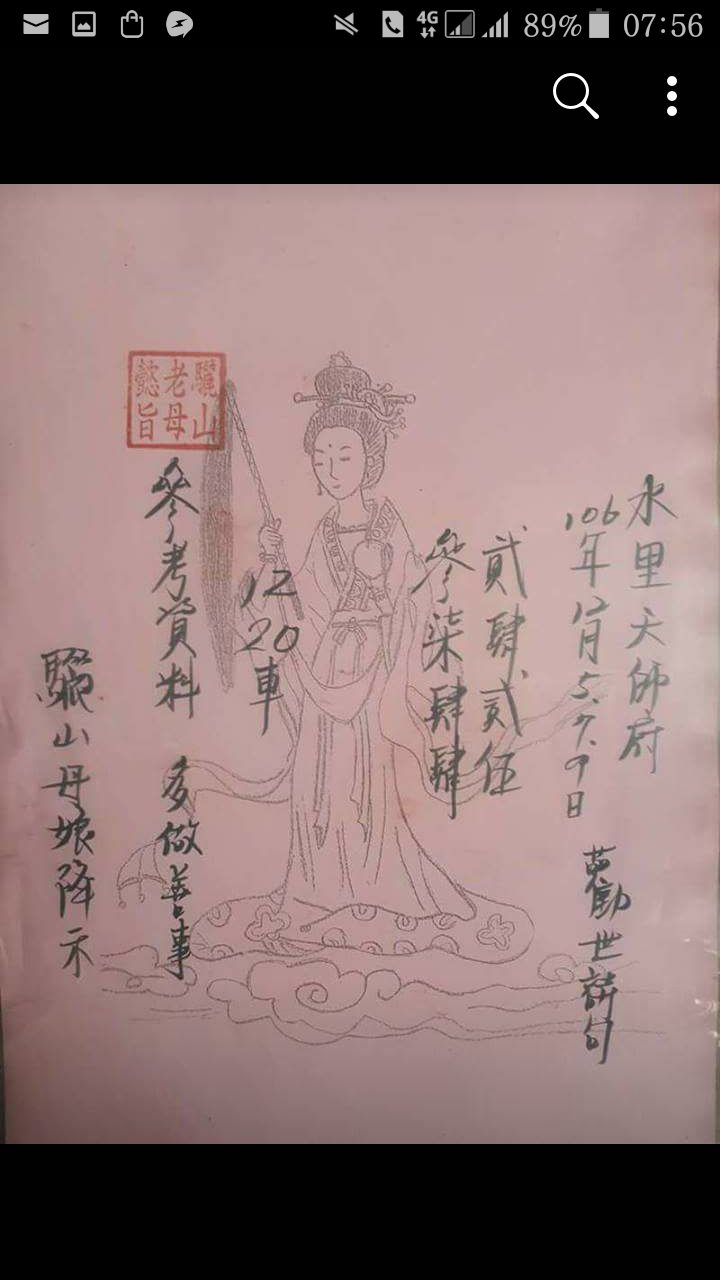 89% 07:56
4G
水里天師府
106年12月5.7.9日
勸世詩句
貳肆貳伍
參柒肆肆
12
20
車
驪山
老母
懿旨
參考資料 多做善事
驪山母娘降示